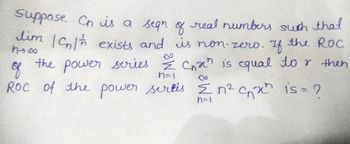 Suppose Cn is a seqn of real numbers such that
lim n→∞ |Cn|^1/n exists and is non-zero. If the ROC
of the power series ∞ Σ n=1 Cnxⁿ is equal to r then
ROC of the power series ∞ Σ n=1 n² Cnxⁿ is = ?